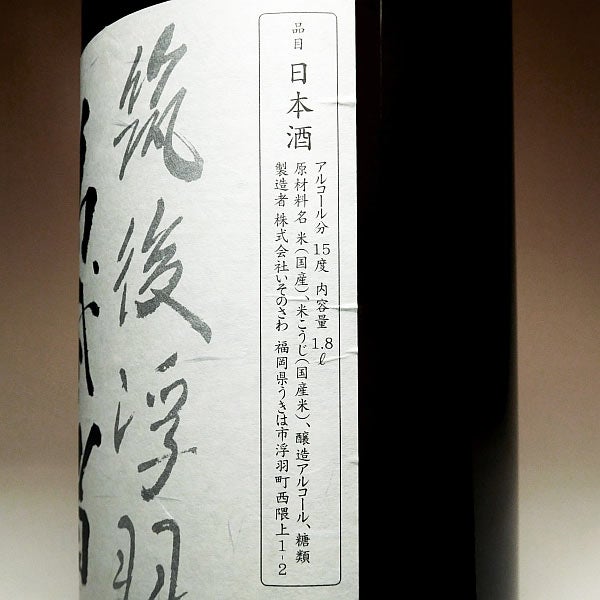 品目 日本酒
アルコール分 15度 内容量 1.8ℓ
原材料名 米(国産)、米こうじ(国産米)、醸造アルコール、糖類
製造者 株式会社いそのさわ 福岡県うきは市浮羽町西隈上1-2
筑後浮羽